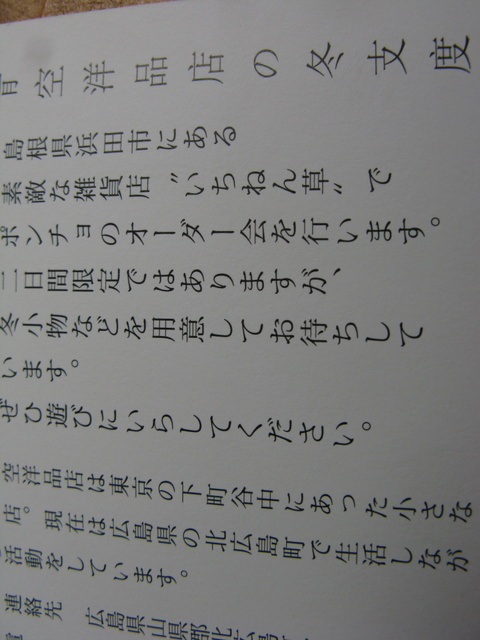 青空洋品店の冬支度
島根県浜田市にある
素敵な雑貨店〝いちねん草〟で
ポンチョのオーダー会を行います。
二日間限定ではありますが、
冬小物などを用意してお待ちして
います。
ぜひ遊びにいらしてください。
空洋品店は東京の下町谷中にあった小さな
店。現在は広島県の北広島町で生活しなが
活動をしています。
連絡先 広島県山県郡北広島